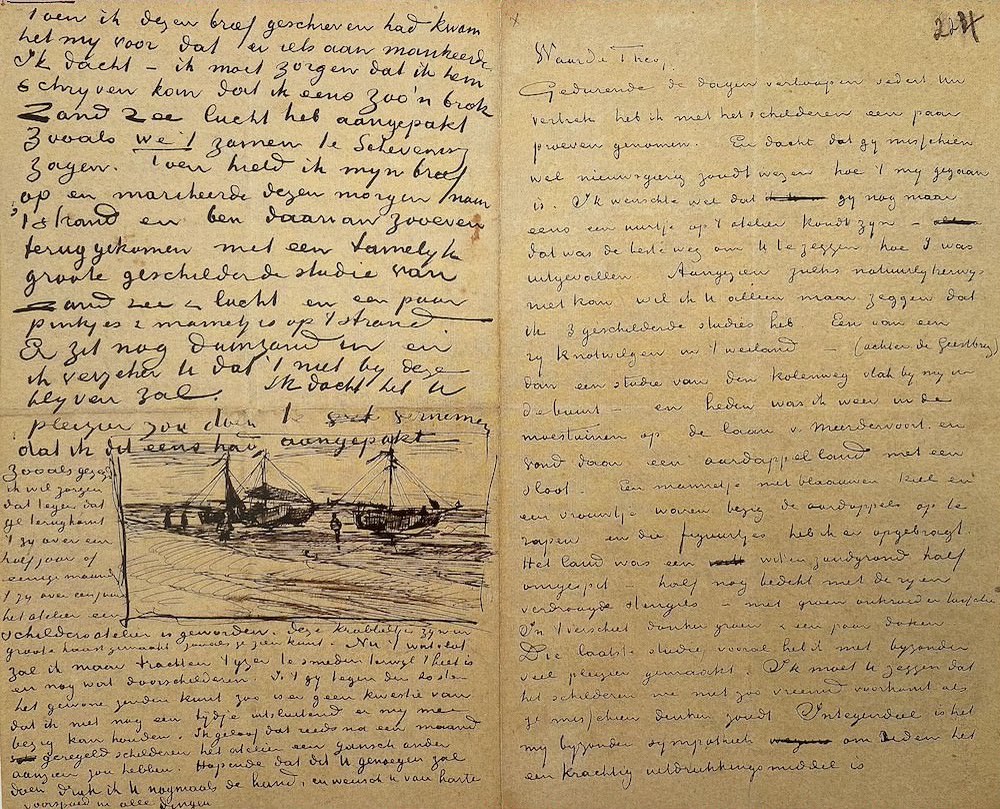 Toen ik dezen brief geschreven had kwam
het my voor dat er iets aan mankeerde
Ik dacht – ik moet zorgen dat ik hem
schryven kan dat ik eens zoo'n brok
Zand zee lucht heb aangepakt
zooals we 't zamen te Schevening
zagen. Toen hield ik myn brief
op en marcheerde dezen morgen naar
't strand en ben daarvan zooeven
teruggekomen met een tamelyk
groote geschilderde studie van
Zand zee & lucht en een paar
pinkjes & mannetjes op 't strand.
Er zit nog duinzand in en
ik verzeker U dat 't niet by deze
blyven zal. Ik dacht het U
plezier zou doen te vernemen
dat ik dit eens had aangepakt
Zooals gezegd
ik wil zorgen
dat tegen dat
ge terugkomt
't zy over een
half jaar of
eenige maand
't zy over een jaar
het atelier een
schildersatelier is geworden. Deze krabbeltjes zyn in
groote haast gemaakt zooals ge zien kunt. Nu 't wat vlot
zal ik maar trachten 't yzer te smeden terwyl 't heet is
en nog wat doorschilderen. Is 't gy tegen den
het gewone zenden kunt zoo is er geen kwestie van
dat ik niet nog een tydje uitsluitend er my mee
bezig kan houden. Ik geloof dat reeds na een maand
geregeld schilderen het atelier een gansch ander
aanzien zou hebben. Hopende dat dit U genoegen zal
doen druk ik U nogmaals de hand, en wensch U van harte
voorspoed in alle dingen
x
Waarde Theo,
Gedurende de dagen verloopen sedert Uw
vertrek heb ik met het schilderen een paar
proeven genomen. En dacht dat gy misschien
wel nieuwsgierig zoudt wezen hoe 't my gegaan
is. Ik wenschte wel dat gy nog maar
eens een uurtje op 't atelier kondt zyn –
dat was de beste weg om U te zeggen hoe 't was
uitgevallen Aangezien zulks natuurlykerwys
niet kan wil ik U alleen maar zeggen dat
ik 3 geschilderde studies heb. Een van een
ry knotwilgen in 't weiland – (achter de Geestbrug)
dan een studie van den kolenweg vlak by my in
de buurt – en heden was ik weer in de
moestuinen op de laan v. Meerdervoort en
vond daar een aardappelland met een
sloot. Een mannetje met blaauwen kiel en
een vrouwtje waren bezig de aardappels op te
rapen en die figuurtjes heb ik er opgebragt
Het land was een witten zandgrond half
omgespit – half nog bedekt met de ryen
verdroogde stengels – met groen onkruid er tusschen
In 't verschiet donker groen & een paar daken.
Die laatste studie vooral heb ik met byzonder
veel plezier gemaakt. Ik moet U zeggen dat
het schilderen me niet zoo vreemd voorkomt als
ge misschien denken zoudt Integendeel is het
my byzonder sympathiek om reden het
een krachtig uitdrukkingsmiddel is